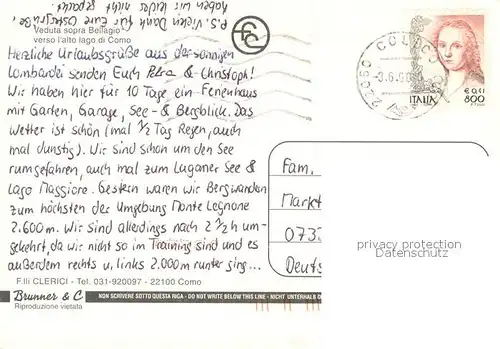 P.S. Vielen Dank für Eure Ostergrüße
haben wir leider nichts geschickt
Veduta sopra Bellagio
verso l'alto lago di Como
Herzliche Urlaubsgrüße aus der sonnigen
Lombardei senden Euch Petra & Christoph!
Wir haben hier für 10 Tage ein Ferienhaus
mit Garten, Garage, See- & Bergblick. Das
Wetter ist schön (mal ½ Tag Regen, auch
mal dunstig). Wir sind schon um den See
rumgefahren, auch mal zum Luganer See &
Lago Maggiore. Gestern waren wir Bergwandern
zum höchsten der Umgebung Monte Legnone
2.600m. Wir sind allerdings nach 2 ½ h um-
gekehrt, da wir nicht so im Training sind und es
außerdem rechts u. links 2.000m runter ging...
F.lli CLERICI - Tel. 031-920097 - 22100 Como
Brunner & C
NON SCRIVERE SOTTO QUESTA RIGA - DO NOT WRITE BELOW THIS LINE - NICHT UNTERHALB D
Riproduzione vietata
22050 COLICO
ITALIA
800
Fam.
Markt
0733
Deuts
privacy protection
Datenschutz